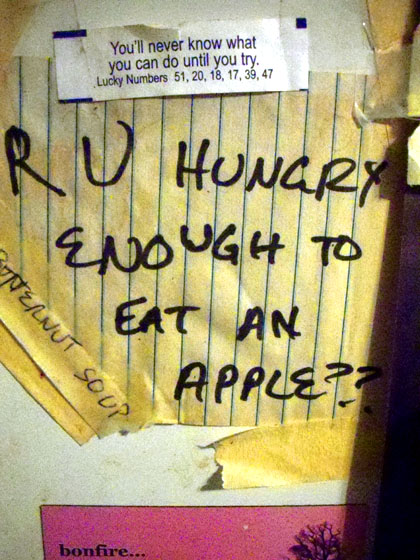 You'll never know what
you can do until you try.
Lucky Numbers 51, 20, 18, 17, 39, 47
R U HUNGRY
ENOUGH TO
EAT AN
APPLE??
SOUP
bonfire...